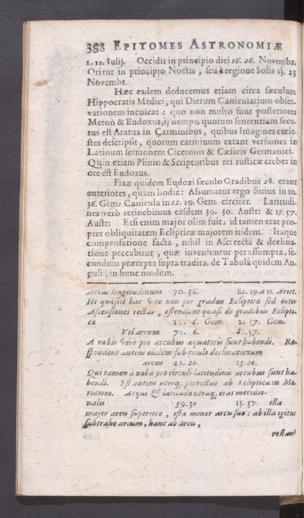 388 EPITOMES ASTRONOMIÆ
1. 11. Iulij. Occidit in principio diei 16. 26. Novembr.
Oritur in principio Noctis, seu è regione Solis 13. 23
Novembr.
Hæc eadem deducemus etiam circa sæculum
Hippocratis Medici, qui Dierum Canicularium obser-
vationem inculcat: quo non multo sunt posteriores
Meton & Eudoxus, ij nempe quorum sententiam secu-
tus est Aratus in Carminibus, quibus Imagines cœle-
stes descripsit, quorum carminum extant versiones in
Latinum sermonem Ciceronis & Cæsaris Germanici.
Quin etiam Plinio & Scriptoribus rei rusticæ creber in
ore est Eudoxus.
Fixæ quidem Eudoxi sæculo Gradibus 28. erant
anteriores, quam hodie: Assumatur ergo Sirius in 10.
36. Gem: Canicula in 22. 19. Gem. circiter. Latitudi-
nes verò retinebimus easdem 39. 30. Austr: & 15. 57.
Austr: Etsi enim major olim fuit, id tamen erat pro-
pter obliquitatem Eclipticæ majorem itidem. Itaque
compensatione facta, nihil in Asc: recta & declina-
tione peccabitur, quæ inveniuntur per assumpta, se-
cundum præcepta supra tradita, de Tabula quidem An-
guli, in hunc modum.
Arcus longitudinum 70. 36. 82. 19. à 0. Ariet.
He quasitis hac vice non per gradum Ecliptica sed inter
Ascensiones rectas, ostendunt quasi de gradibus Eclipti-
ca 12. 6. Gem. 2. 57. Gem.
Vel arcum 72. 6. 82. 57.
A nobis verò pro arcubus aquatoris sunt habendi. Re-
spondent autem eisdem sub titulo declinationum
arcus 22. 20. 23. 20.
Qui tamen à nobis pro circuli latitudinis arcubus sunt ha-
bendi. Est autem uterq, porrectus ab Ecliptica in Me-
ridiem. Atqui & latitudo utraq, erat meridio-
nalis 39. 30 15. 57. illa
major arcu superiore, ista minor arcu suo: ab illa igitur
subtrahe arcum, hanc ab arcu,
restant